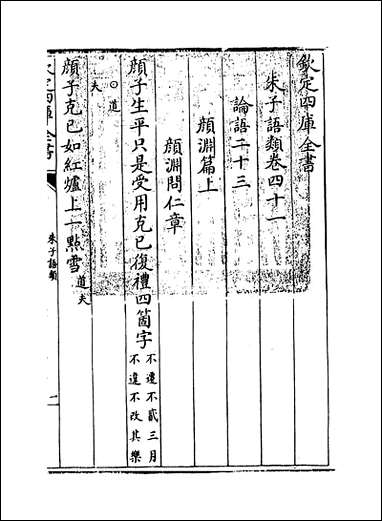 欽定四庫全書
朱子語類卷四十一
論語二十三
顔淵篇上
顔淵問仁章
顔子生平只是受用克已復禮四箇字不遷不貳三月
不違不改其樂
○道
夫
顔子克已如紅爐上一㸃雪道夫
欽定四庫全書
朱子語類
一